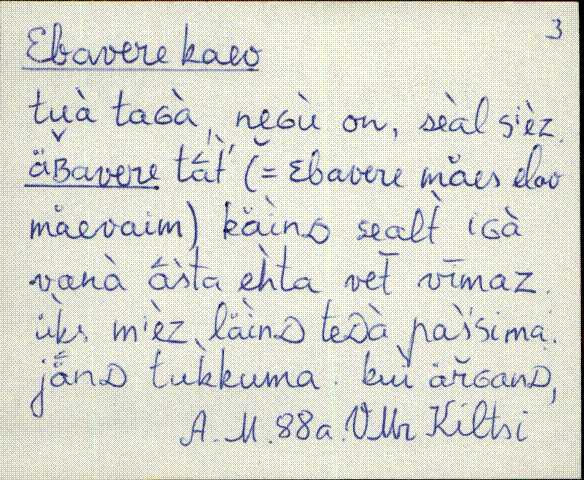 3
Ebavere kaev
tu̬à taGà, neGù on, sèàl sʹìèz
äʙavere tát́ (= Ebavere mäes elav
mäevaim) käìnD sealt̀ iGà
vanà ásta eh̀ta vet̄ vīmaz.
ük̀s mʹìèz läìnD teDà paìsima.
jä̋nD tuk̀kuma. kuì ärGanD,
A. M. 88a. VMr Kiltsi